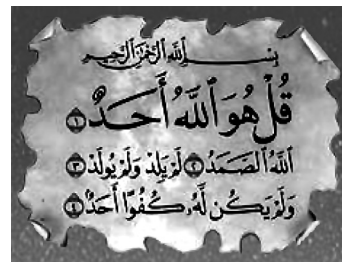 بِسْمِ ٱللَّهِ ٱلرَّحْمَٰنِ ٱلرَّحِيمِ
قُلْ هُوَ ٱللَّهُ أَحَدٌ ۝١
ٱللَّهُ ٱلصَّمَدُ ۝٢ لَمْ يَلِدْ وَلَمْ يُولَدْ ۝٣
وَلَمْ يَكُن لَّهُۥ كُفُوًا أَحَدٌۢ ۝٤